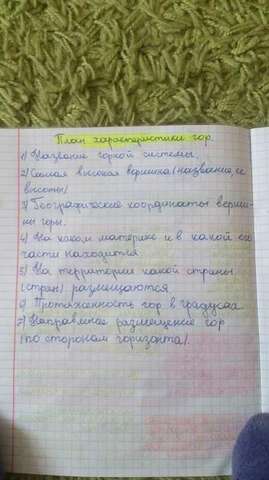 План характеристики гор.
1) Название горной системы.
2) Самая высокая вершина (название, ее
высота)
3) Географические координаты верши-
ны горы.
4) На каком материке и в какой его
части находится
5) На территории какой страны
(стран) размещаются
6) Протяженность гор в градусах
7) Направление размещение гор
(по сторонам горизонта).